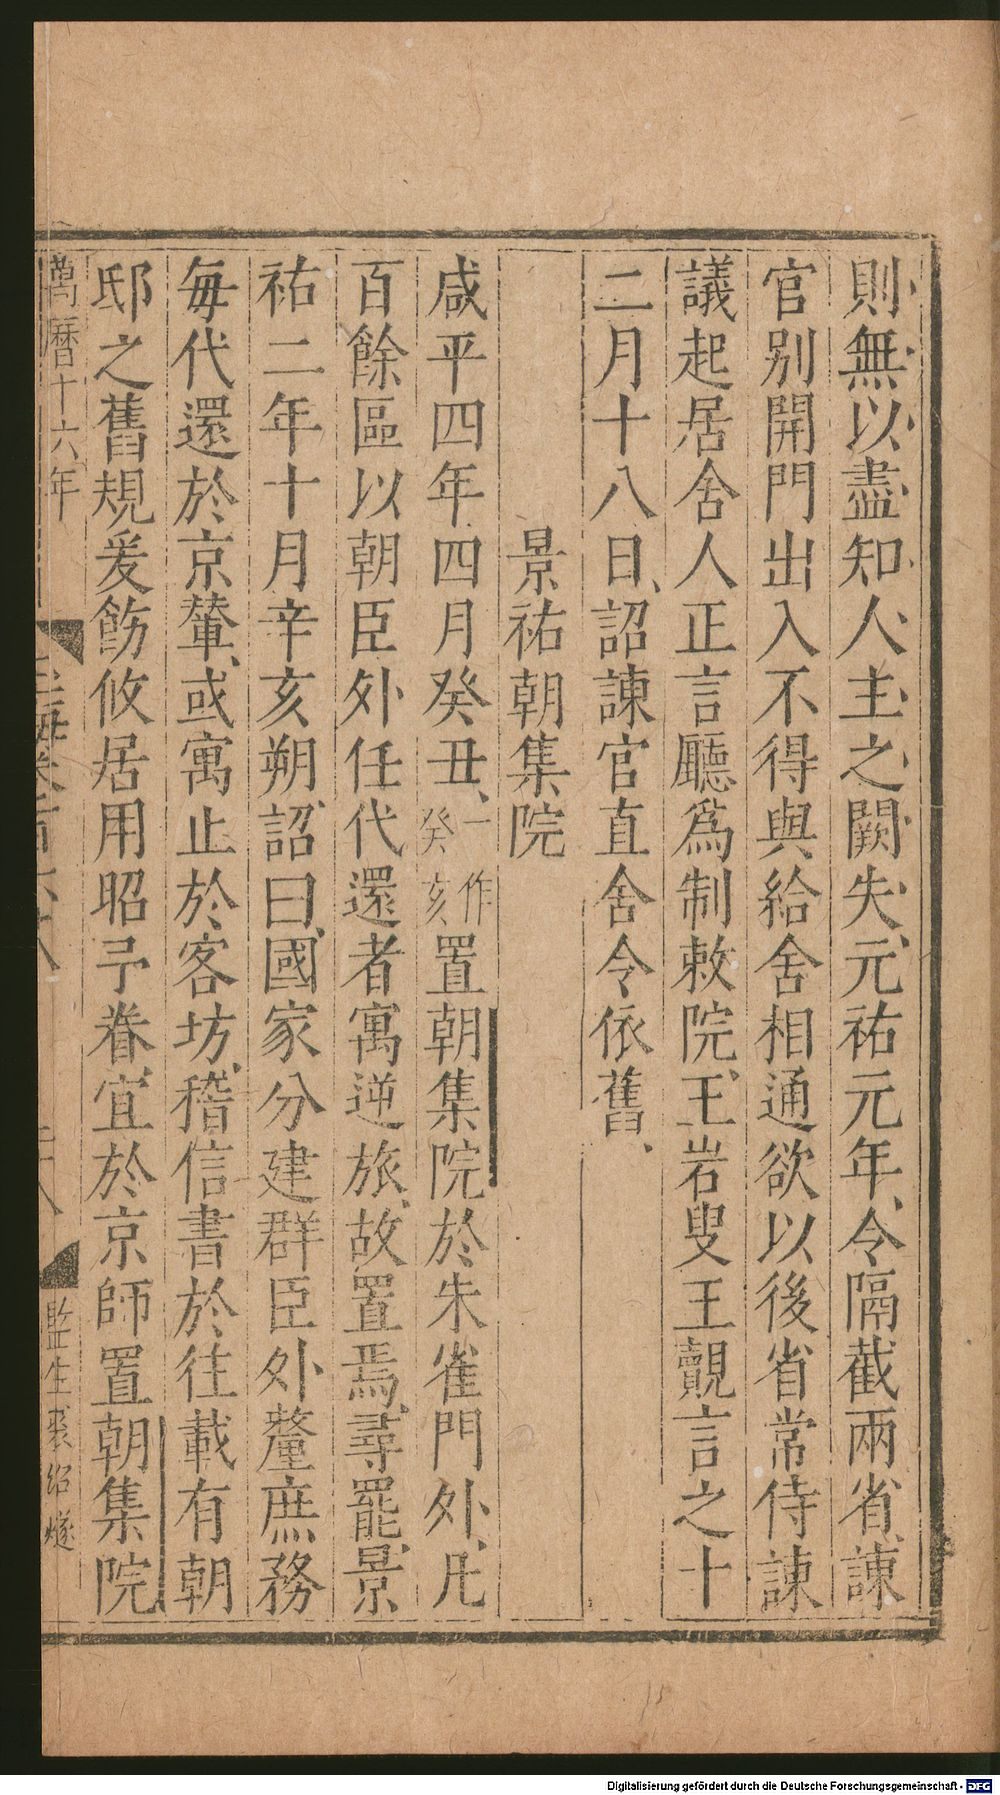 則無以盡知人主之闕失元祐元年令隔截兩省諫
官别開門出入不得與給舍相通欲以後省常侍諫
議起居舍人正言廳爲制敕院王岩叟王覿言之十
二月十八日詔諫官直舍令依舊
景祐朝集院
咸平四年四月癸丑一作癸亥置朝集院於朱雀門外凡
百餘區以朝臣外任代還者寓逆旅故置焉尋罷景
祐二年十月辛亥朔詔曰國家分建群臣外釐庶務
每代還於京輦或寓止於客坊稽信書於往載有朝
邸之舊規爰飭攸居用昭予眷宜於京師置朝集院
萬曆十六年
玉海卷一百六十八
二十八
監生裴紹㷟
Digitalisierung gefördert durch die Deutsche Forschungsgemeinschaft - DFG